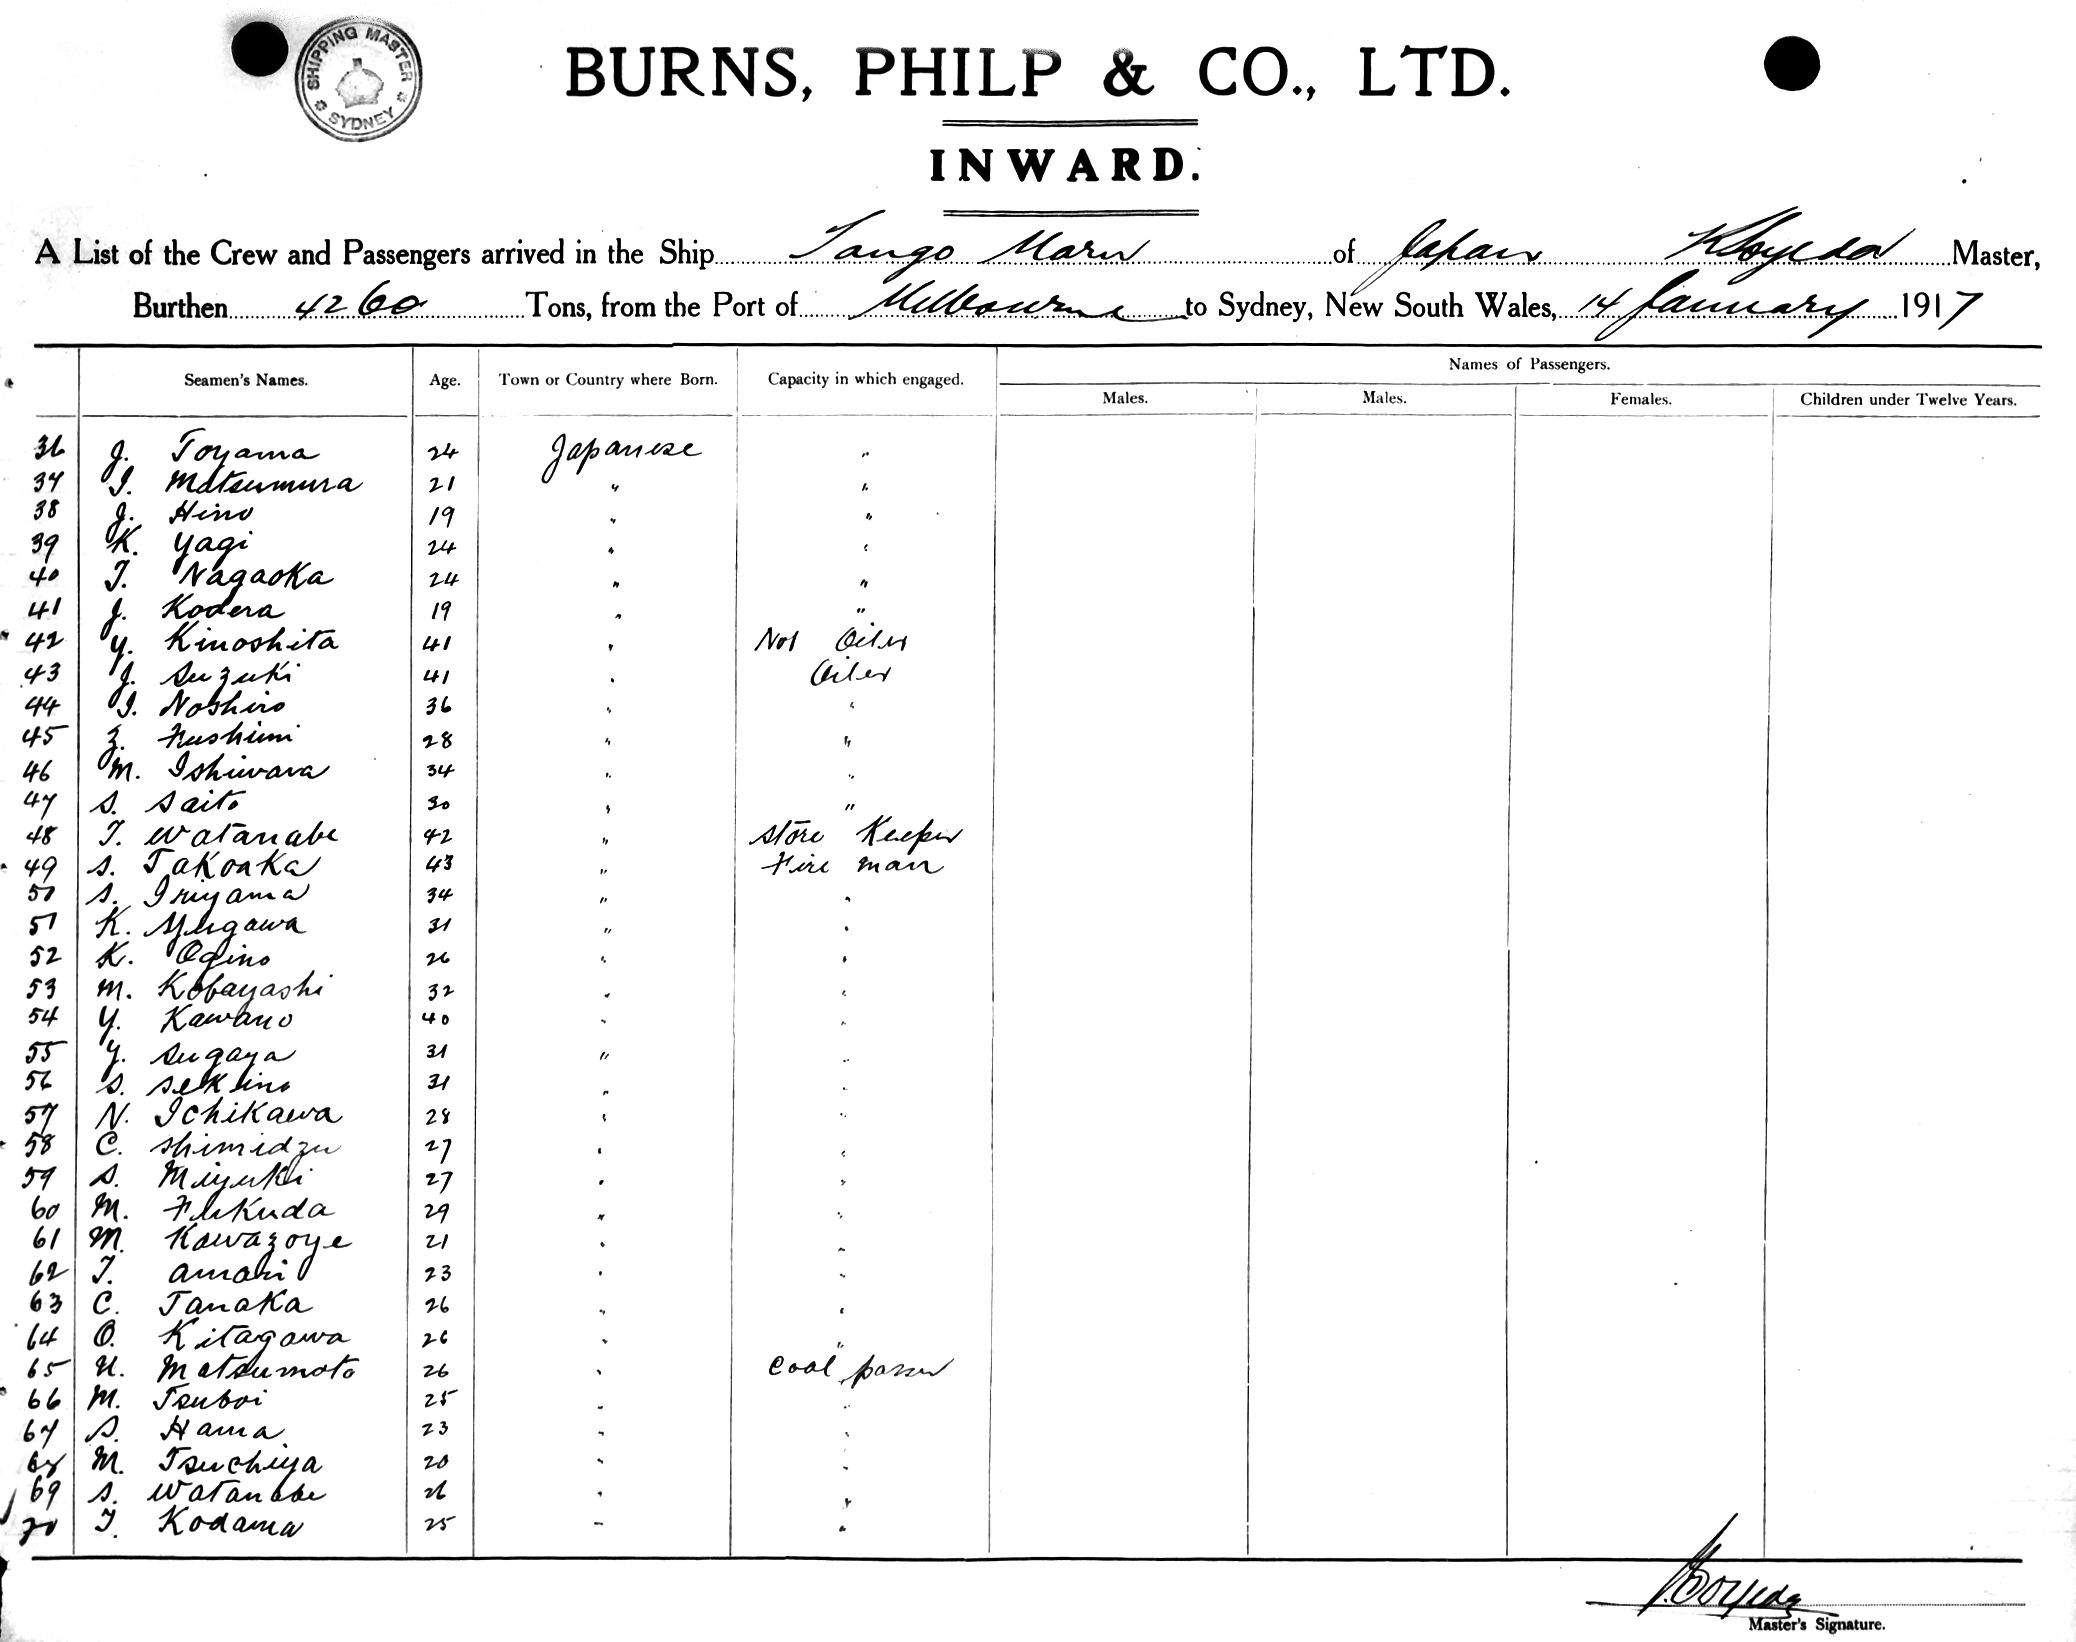 SHIPPING MASTER
SYDNEY
BURNS, PHILP & CO., LTD.
INWARD.
A List of the Crew and Passengers arrived in the Ship Tango Maru of Japan K Soyeda Master,
Burthen 4260 Tons, from the Port of Melbourne to Sydney, New South Wales, 14 January 1917
Names of Passengers.
Seamen's Names. Age. Town or Country where Born. Capacity in which engaged. Males. Males. Females. Children under Twelve Years.
36 J. Toyama 24 Japanese "
37 I. Matsumura 21 " "
38 J. Hino 19 " "
39 K. Yagi 24 " "
40 T. Nagaoka 24 " "
41 J. Kodera 19 " "
42 Y. Kinoshita 41 " No1 Oiler
43 J. Suzuki 41 " Oiler
44 I. Noshiro 36 " "
45 Z. Fushimi 28 " "
46 M. Ishiwara 34 " "
47 S. Saito 30 " "
48 T. Watanabe 42 " Store Keeper
49 S. Takoaka 43 " Fire man
50 S. Iriyama 34 " "
51 K. Yugawa 31 " "
52 K. Ogino 26 " "
53 M. Kobayashi 32 " "
54 Y. Kawano 40 " "
55 Y. Sugaya 31 " "
56 S. Sekino 31 " "
57 N. Ichikawa 28 " "
58 C. Shimidzu 27 " "
59 S. Miyuki 27 " "
60 M. Fukuda 29 " "
61 M. Kawazoye 21 " "
62 T. Amari 23 " "
63 C. Tanaka 26 " "
64 O. Kitagawa 26 " "
65 U. Matsumoto 26 " Coal passer
66 M. Tsuboi 25 " "
67 S. Hama 23 " "
68 M. Tsuchiya 20 " "
69 S. Watanabe 26 " "
70 T. Kodama 25 " "
K. Soyeda
Master's Signature.